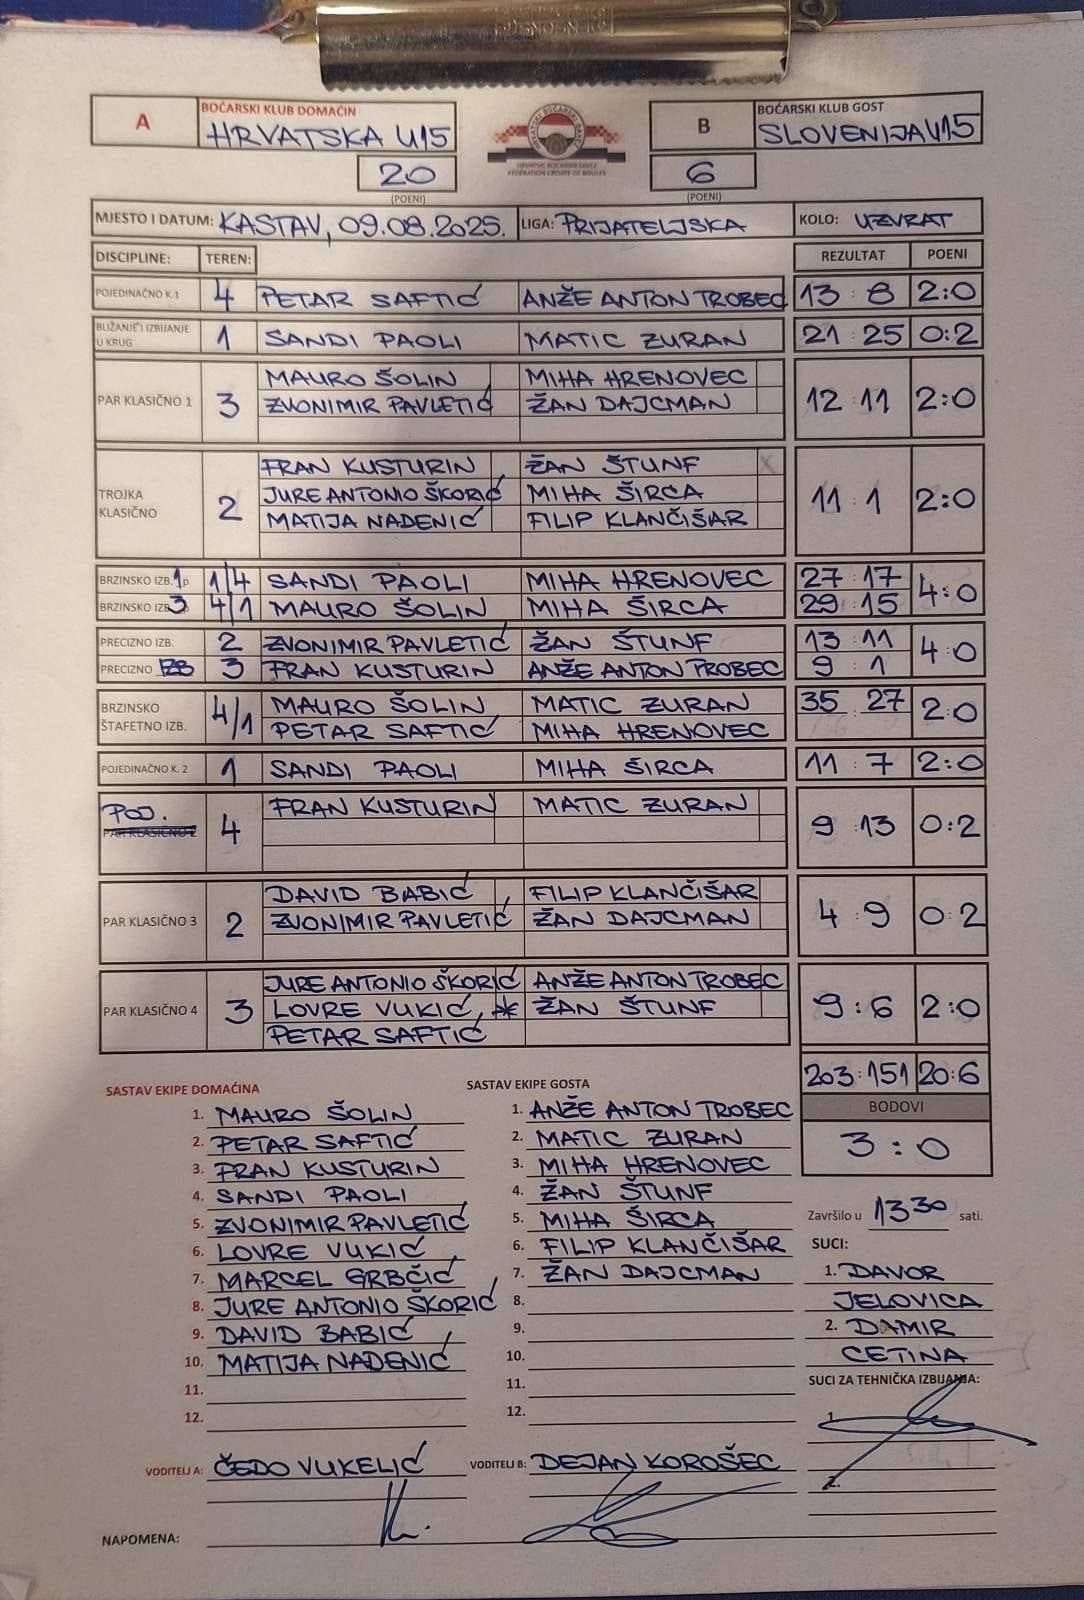 A BOĆARSKI KLUB DOMAĆIN B BOĆARSKI KLUB GOST
HRVATSKA U15 SLOVENIJA U15
HRVATSKI BOĆARSKI SAVEZ
20 6
(POENI) (POENI)
MJESTO I DATUM: KASTAV, 09.08.2025. LIGA: PRIJATELJSKA KOLO: UZVRAT
DISCIPLINE: TEREN: REZULTAT POENI
POJEDINAČNO K.1 4 PETAR SAFTIĆ ANŽE ANTON TROBEC 13 : 8 2:0
BLIŽANJE I IZBIJANJE U KRUG 1 SANDI PAOLI MATIC ZURAN 21 : 25 0:2
PAR KLASIČNO 1 3 MAURO ŠOLIN MIHA HRENOVEC 12 : 11 2:0
ZVONIMIR PAVLETIĆ ŽAN DAJCMAN
TROJKA KLASIČNO 2 FRAN KUSTURIN ŽAN ŠTUNF X 11 : 1 2:0
JURE ANTONIO ŠKORIĆ MIHA ŠIRCA
MATIJA NADENIĆ FILIP KLANČIŠAR
BRZINSKO IZB. 1p 1/4 SANDI PAOLI MIHA HRENOVEC 27 : 17 4:0
BRZINSKO IZB. 3 4/1 MAURO ŠOLIN MIHA ŠIRCA 29 : 15
PRECIZNO IZB. 2 ZVONIMIR PAVLETIĆ ŽAN ŠTUNF 13 : 11 4:0
PRECIZNO IZB 3 FRAN KUSTURIN ANŽE ANTON TROBEC 9 : 1
BRZINSKO ŠTAFETNO IZB. 4/1 MAURO ŠOLIN MATIC ZURAN 35 : 27 2:0
PETAR SAFTIĆ MIHA HRENOVEC
POJEDINAČNO K. 2 1 SANDI PAOLI MIHA ŠIRCA 11 : 7 2:0
POJ. PAR KLASIČNO 2 4 FRAN KUSTURIN MATIC ZURAN 9 : 13 0:2
PAR KLASIČNO 3 2 DAVID BABIĆ FILIP KLANČIŠAR 4 : 9 0:2
ZVONIMIR PAVLETIĆ ŽAN DAJCMAN
PAR KLASIČNO 4 3 JURE ANTONIO ŠKORIĆ ANŽE ANTON TROBEC 9 : 6 2:0
LOVRE VUKIĆ * ŽAN ŠTUNF
PETAR SAFTIĆ
203:151 20:6
SASTAV EKIPE DOMAĆINA SASTAV EKIPE GOSTA BODOVI
1. MAURO ŠOLIN 1. ANŽE ANTON TROBEC
2. PETAR SAFTIĆ 2. MATIC ZURAN 3 : 0
3. FRAN KUSTURIN 3. MIHA HRENOVEC
4. SANDI PAOLI 4. ŽAN ŠTUNF
5. ZVONIMIR PAVLETIĆ 5. MIHA ŠIRCA Završilo u 13 30 sati.
6. LOVRE VUKIĆ 6. FILIP KLANČIŠAR SUCI:
7. MARCEL GRBČIĆ 7. ŽAN DAJCMAN 1. DAVOR
8. JURE ANTONIO ŠKORIĆ 8. JELOVICA
9. DAVID BABIĆ 9. 2. DAMIR
10. MATIJA NADENIĆ 10. CETINA
11. 11. SUCI ZA TEHNIČKA IZBIJANJA:
12. 12. 1.
VODITELJ A: ČEDO VUKELIĆ VODITELJ B: DEJAN KOROŠEC
2.
NAPOMENA: